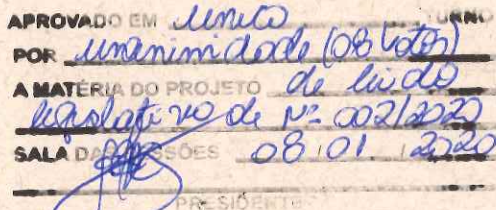 APROVADO EM único TURNO
POR unanimidade (08 votos)
A MATÉRIA DO PROJETO de lei do
legislativo de Nº 002/2020
SALA DAS SESSÕES 08 / 01 / 2020
PRESIDENTE